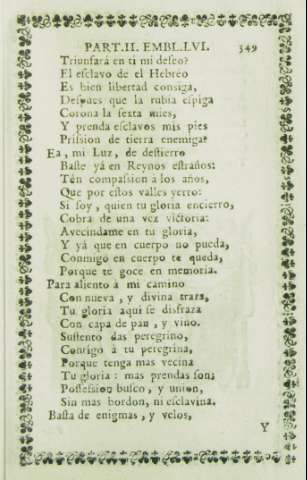 PART. II. EMBL. LVI. 349
Triunfarà en ti mi deseo?
El esclavo de el Hebreo
Es bien libertad consiga,
Despues que la rubia espiga
Corona la sexta mies,
Y prenda esclavos mis pies
Prision de tierra enemiga?
Ea, mi Luz, de destierro
Baste yá en Reynos estraños:
Tén compassion à los años,
Que por estos valles yerro:
Si soy, quien tu gloria encierro,
Cobra de una vez victoria:
Avecindame en tu gloria,
Y yà que en cuerpo no pueda,
Conmigo en cuerpo te queda,
Porque te goce en memoria.
Para aliento à mi camino
Con nueva, y divina traza,
Tu gloria aqui se disfraza
Con capa de pan, y vino.
Sustento das peregrino,
Contigo à tu peregrina,
Porque tenga mas vecina
Tu gloria: mas prendas son;
Possession busco, y union,
Sin mas bordon, ni esclavina.
Basta de enigmas, y velos,
Y